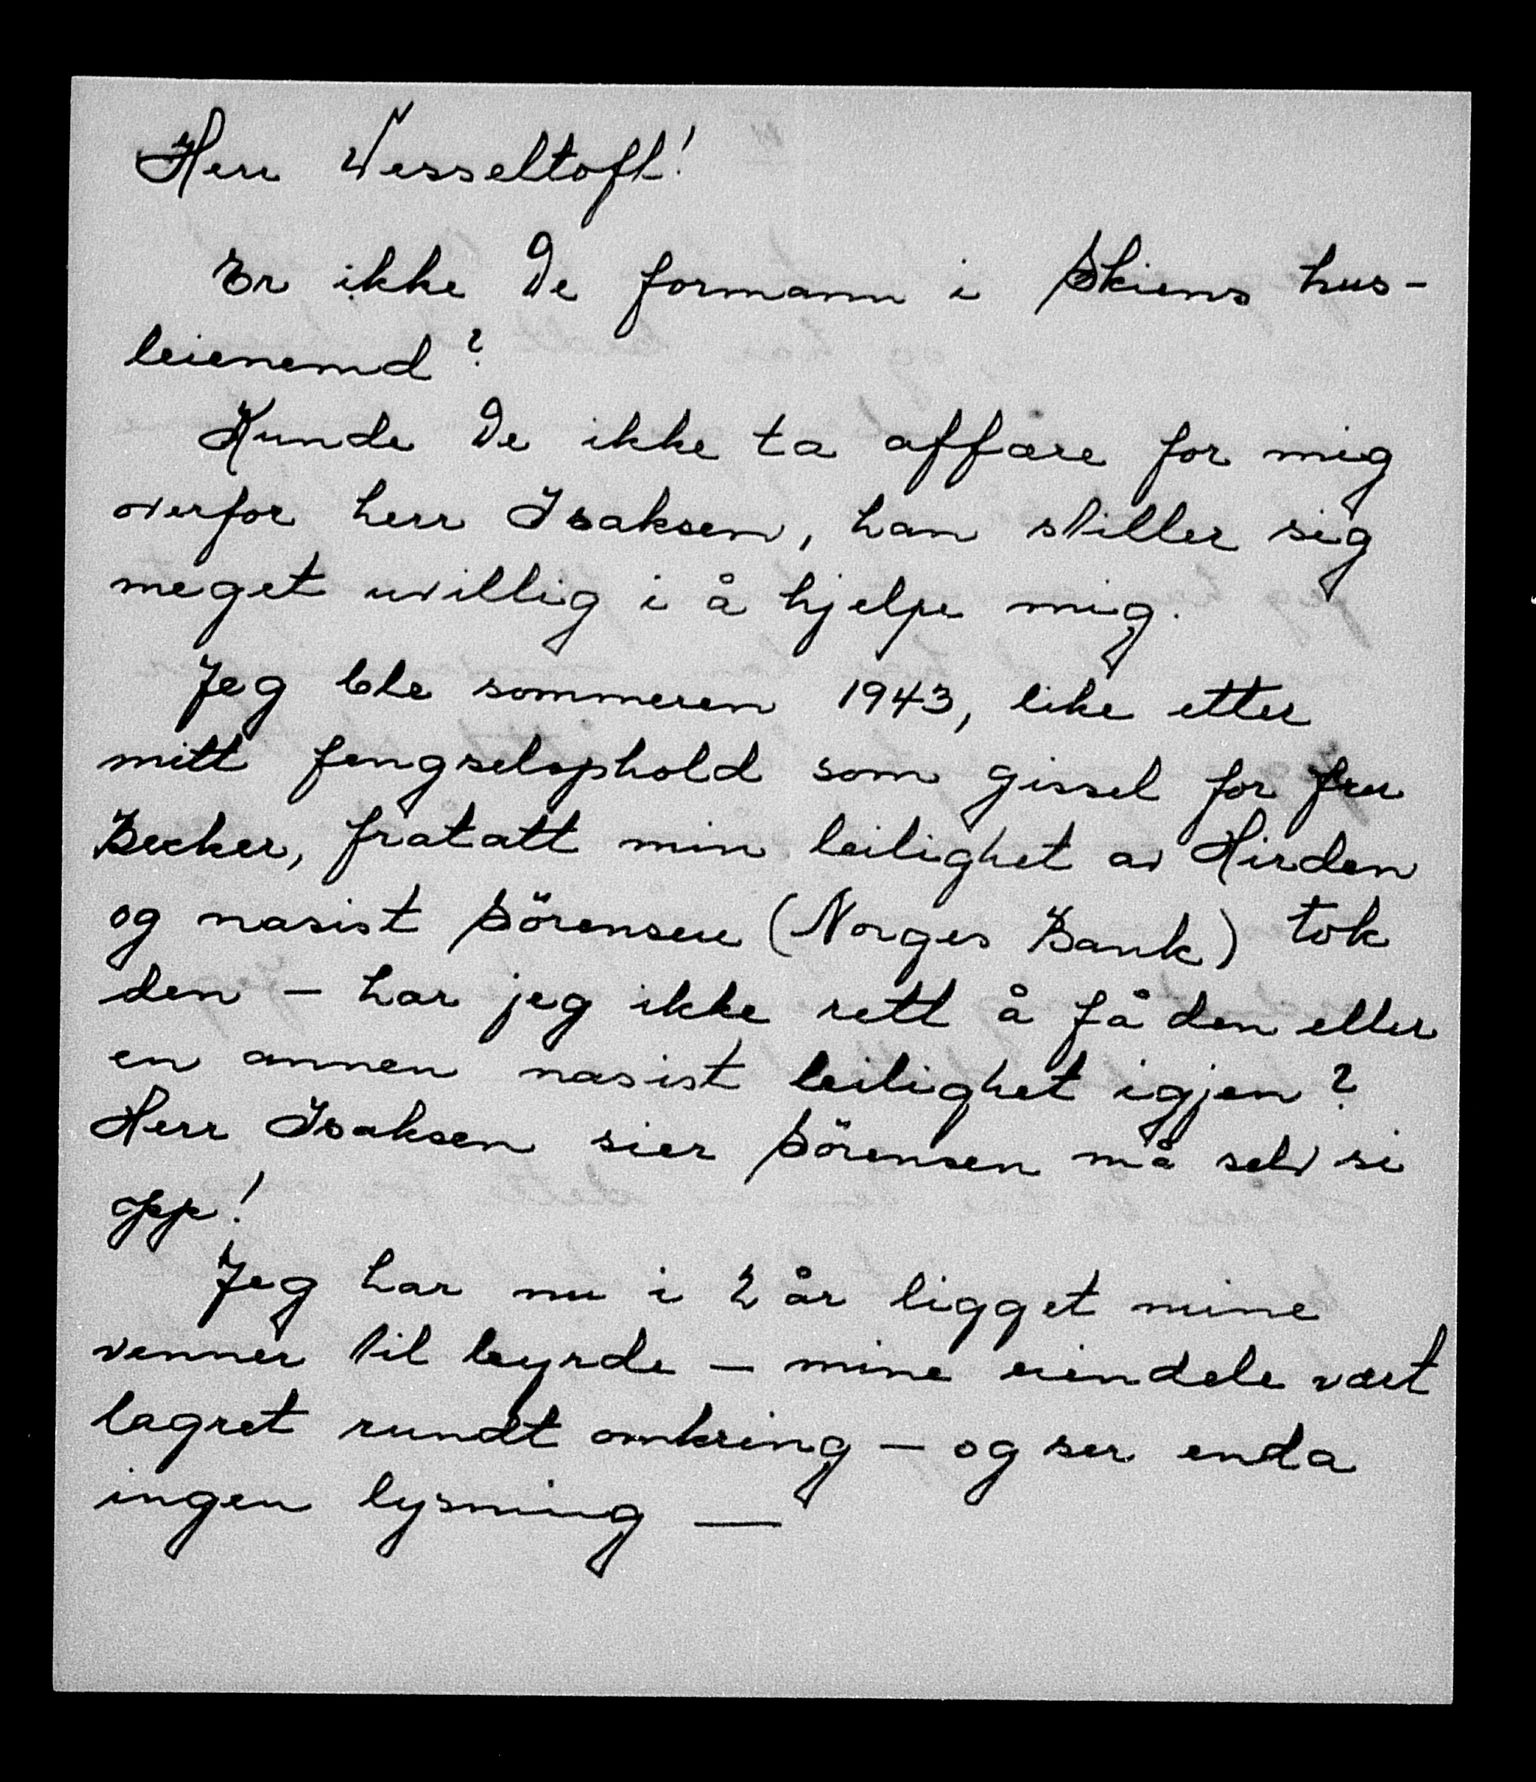 Herr Wesseltoft!
Er ikke De formann i Skiens hus-
leienemd?
Kunde De ikke ta affære for mig
overfor herr Isaksen, han stiller sig
meget uvillig i å hjelpe mig.
Jeg ble sommeren 1943, like etter
mitt fengselsphold som gissel for fru
Becker, fratatt min leilighet av Hirden
og nasist Sörensen (Norges Bank) tok
den – har jeg ikke rett å få den eller
en annen nasist leilighet igjen?
Herr Isaksen sier Sörensen må selv si
opp!
Jeg har nu i 2 år ligget mine
venner til byrde – mine eiendele vært
lagret rundt omkring – og ser enda
ingen lysning —